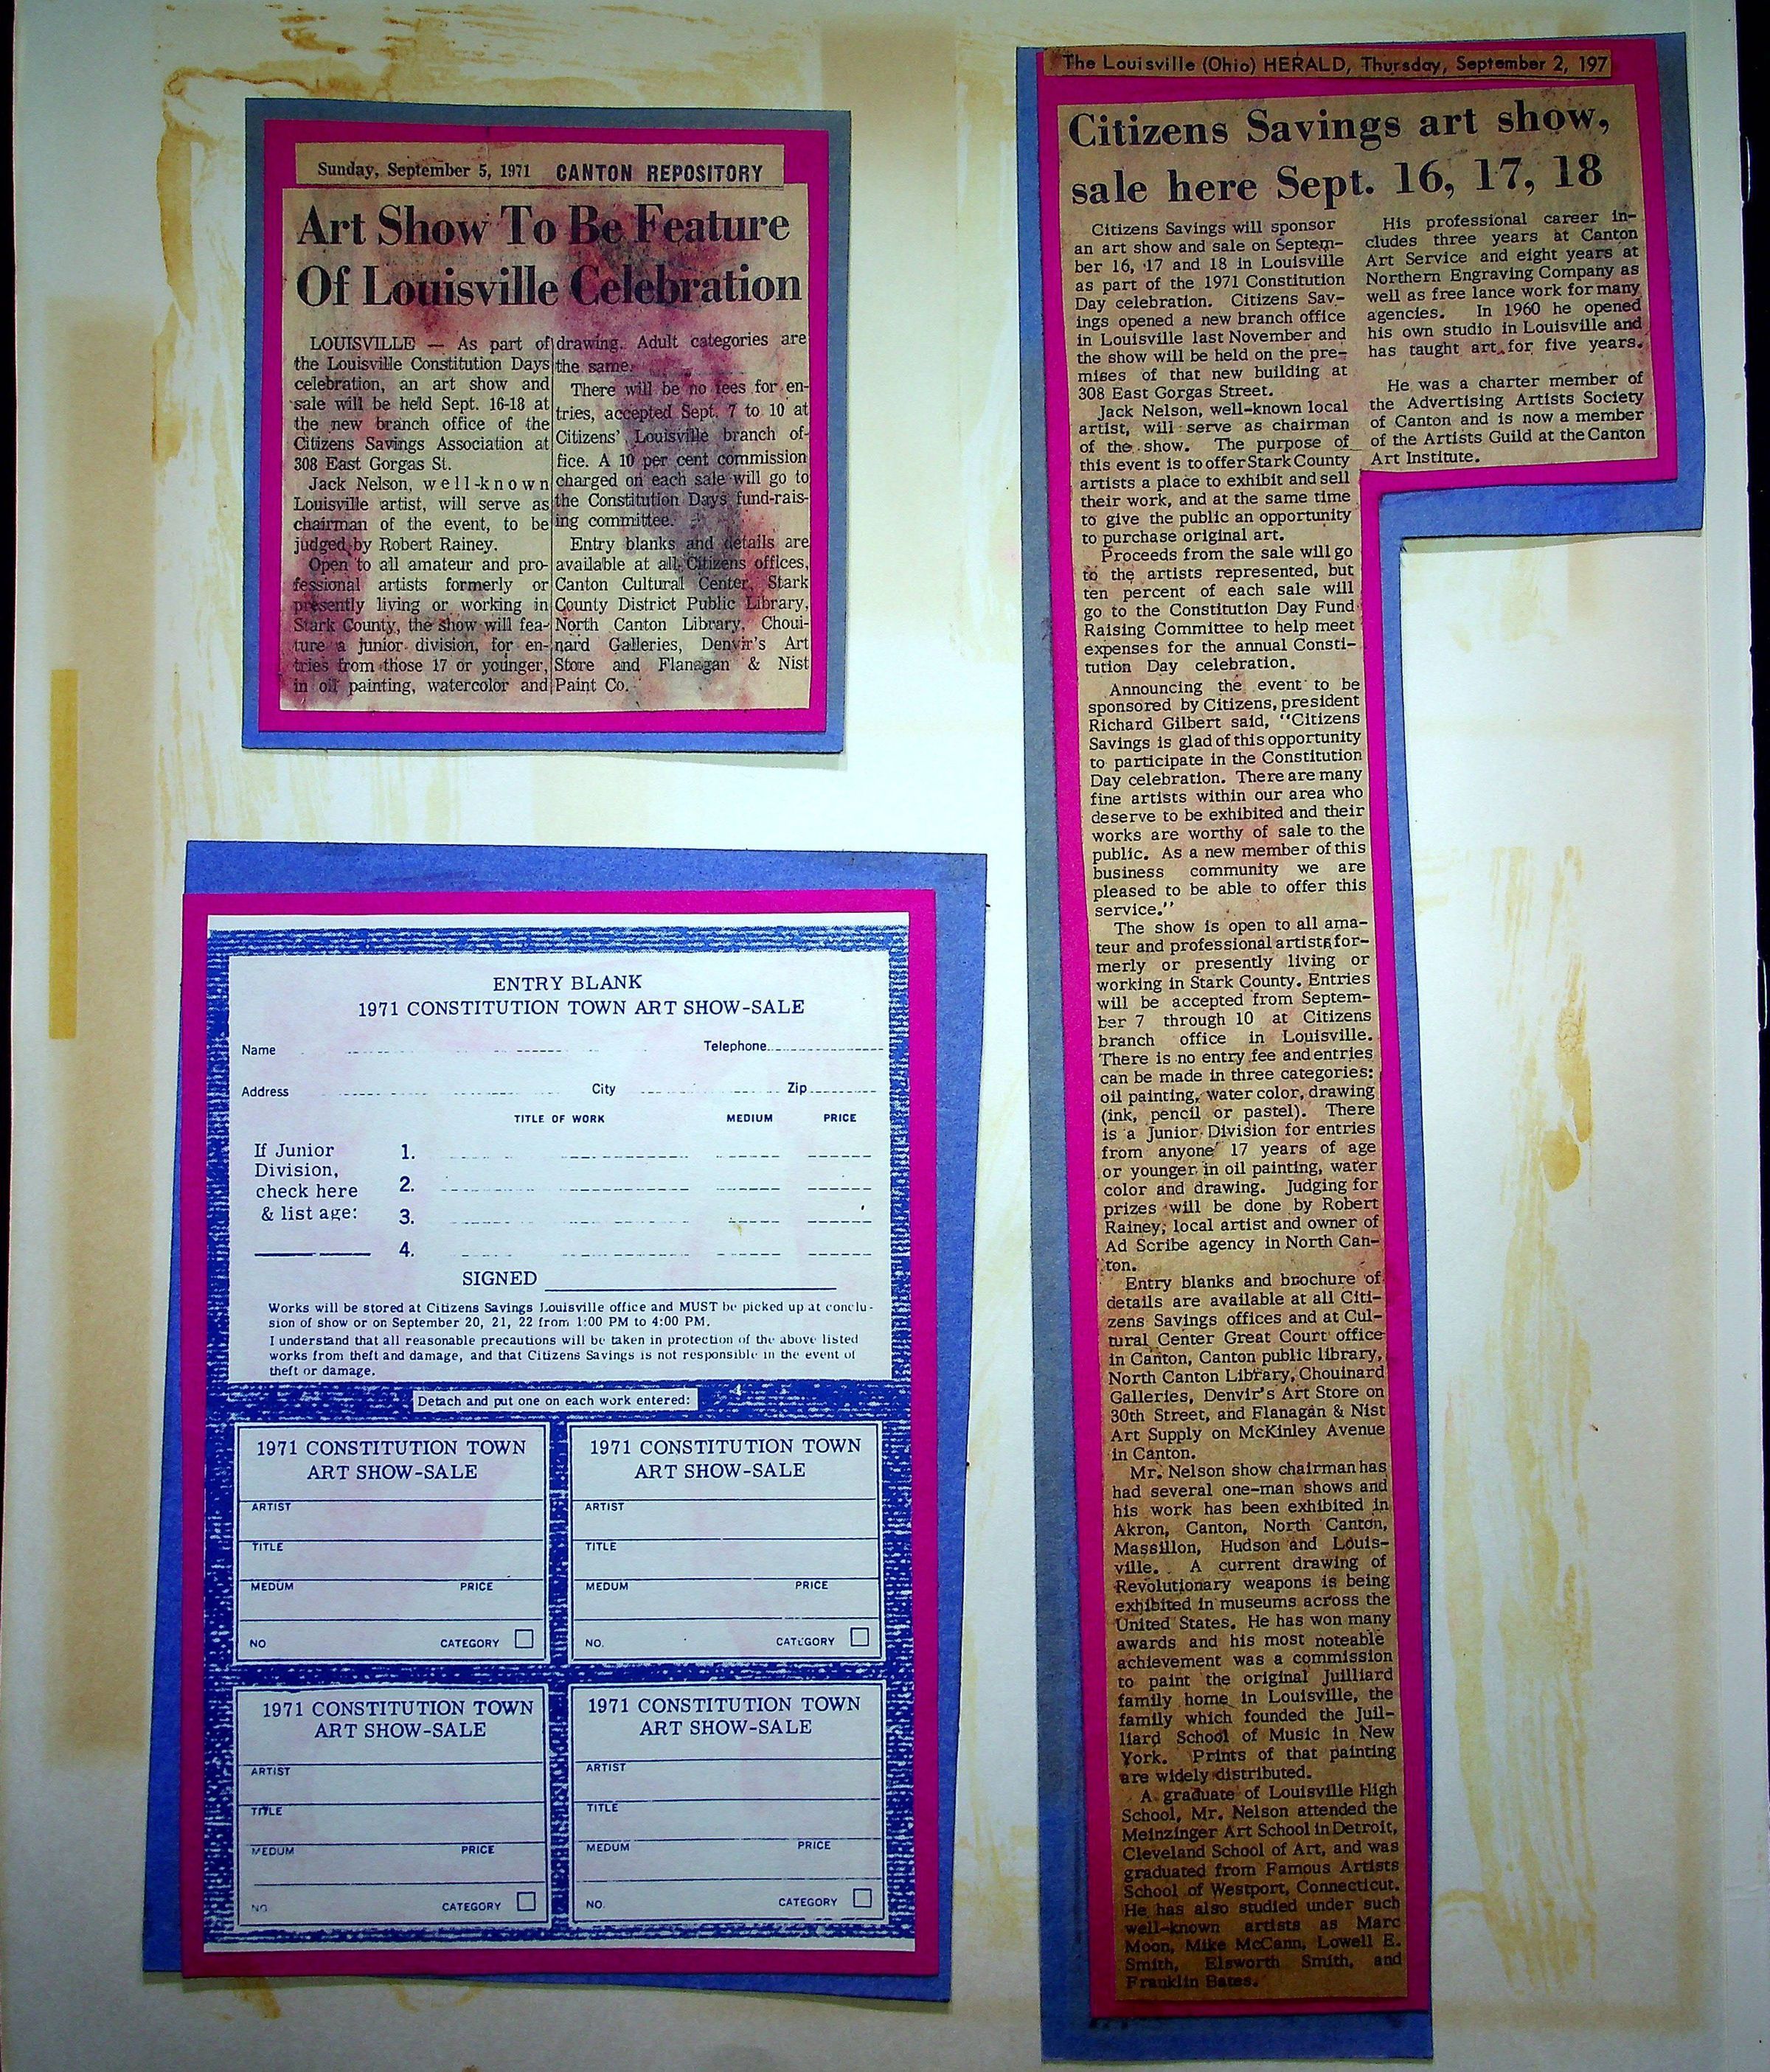 Sunday, September 5, 1971 CANTON REPOSITORY
Art Show To Be Feature
Of Louisville Celebration
LOUISVILLE — As part of
the Louisville Constitution Days
celebration, an art show and
sale will be held Sept. 16-18 at
the new branch office of the
Citizens Savings Association at
308 East Gorgas St.
Jack Nelson, well-known
Louisville artist, will serve as
chairman of the event, to be
judged by Robert Rainey.
Open to all amateur and pro-
fessional artists formerly or
presently living or working in
Stark County, the show will fea-
ture a junior division, for en-
tries from those 17 or younger,
in oil painting, watercolor and
drawing. Adult categories are
the same.
There will be no fees for en-
tries, accepted Sept. 7 to 10 at
Citizens' Louisville branch of-
fice. A 10 per cent commission
charged on each sale will go to
the Constitution Days fund-rais-
ing committee.
Entry blanks and details are
available at all Citizens offices,
Canton Cultural Center, Stark
County District Public Library,
North Canton Library, Choui-
nard Galleries, Denvir's Art
Store and Flanagan & Nist
Paint Co.
ENTRY BLANK
1971 CONSTITUTION TOWN ART SHOW-SALE
Name Telephone
Address City Zip
TITLE OF WORK MEDIUM PRICE
If Junior
Division,
check here
& list age:
1.
2.
3.
4.
SIGNED
Works will be stored at Citizens Savings Louisville office and MUST be picked up at conclu-
sion of show or on September 20, 21, 22 from 1:00 PM to 4:00 PM.
I understand that all reasonable precautions will be taken in protection of the above listed
works from theft and damage, and that Citizens Savings is not responsible in the event of
theft or damage.
Detach and put one on each work entered:
1971 CONSTITUTION TOWN
ART SHOW-SALE
ARTIST
TITLE
MEDUM PRICE
NO CATEGORY
1971 CONSTITUTION TOWN
ART SHOW-SALE
ARTIST
TITLE
MEDUM PRICE
NO. CATEGORY
1971 CONSTITUTION TOWN
ART SHOW-SALE
ARTIST
TITLE
MEDUM PRICE
NO CATEGORY
1971 CONSTITUTION TOWN
ART SHOW-SALE
ARTIST
TITLE
MEDUM PRICE
NO. CATEGORY
The Louisville (Ohio) HERALD, Thursday, September 2, 197
Citizens Savings art show,
sale here Sept. 16, 17, 18
Citizens Savings will sponsor
an art show and sale on Septem-
ber 16, 17 and 18 in Louisville
as part of the 1971 Constitution
Day celebration. Citizens Sav-
ings opened a new branch office
in Louisville last November and
the show will be held on the pre-
mises of that new building at
308 East Gorgas Street.
Jack Nelson, well-known local
artist, will serve as chairman
of the show. The purpose of
this event is to offer Stark County
artists a place to exhibit and sell
their work, and at the same time
to give the public an opportunity
to purchase original art.
Proceeds from the sale will go
to the artists represented, but
ten percent of each sale will
go to the Constitution Day Fund
Raising Committee to help meet
expenses for the annual Consti-
tution Day celebration.
Announcing the event to be
sponsored by Citizens, president
Richard Gilbert said, "Citizens
Savings is glad of this opportunity
to participate in the Constitution
Day celebration. There are many
fine artists within our area who
deserve to be exhibited and their
works are worthy of sale to the
public. As a new member of this
business community we are
pleased to be able to offer this
service."
The show is open to all ama-
teur and professional artists for-
merly or presently living or
working in Stark County. Entries
will be accepted from Septem-
ber 7 through 10 at Citizens
branch office in Louisville.
There is no entry fee and entries
can be made in three categories:
oil painting, water color, drawing
(ink, pencil or pastel). There
is a Junior Division for entries
from anyone 17 years of age
or younger in oil painting, water
color and drawing. Judging for
prizes will be done by Robert
Rainey, local artist and owner of
Ad Scribe agency in North Can-
ton.
Entry blanks and brochure of
details are available at all Citi-
zens Savings offices and at Cul-
tural Center Great Court office
in Canton, Canton public library,
North Canton Library, Chouinard
Galleries, Denvir's Art Store on
30th Street, and Flanagan & Nist
Art Supply on McKinley Avenue
in Canton.
Mr. Nelson show chairman has
had several one-man shows and
his work has been exhibited in
Akron, Canton, North Canton,
Massillon, Hudson and Louis-
ville. A current drawing of
Revolutionary weapons is being
exhibited in museums across the
United States. He has won many
awards and his most noteable
achievement was a commission
to paint the original Juilliard
family home in Louisville, the
family which founded the Juil-
liard School of Music in New
York. Prints of that painting
are widely distributed.
A graduate of Louisville High
School, Mr. Nelson attended the
Meinzinger Art School in Detroit,
Cleveland School of Art, and was
graduated from Famous Artists
School of Westport, Connecticut.
He has also studied under such
well-known artists as Marc
Moon, Mike McCann, Lowell E.
Smith, Elsworth Smith, and
Franklin Bates.
His professional career in-
cludes three years at Canton
Art Service and eight years at
Northern Engraving Company as
well as free lance work for many
agencies. In 1960 he opened
his own studio in Louisville and
has taught art for five years.
He was a charter member of
the Advertising Artists Society
of Canton and is now a member
of the Artists Guild at the Canton
Art Institute.